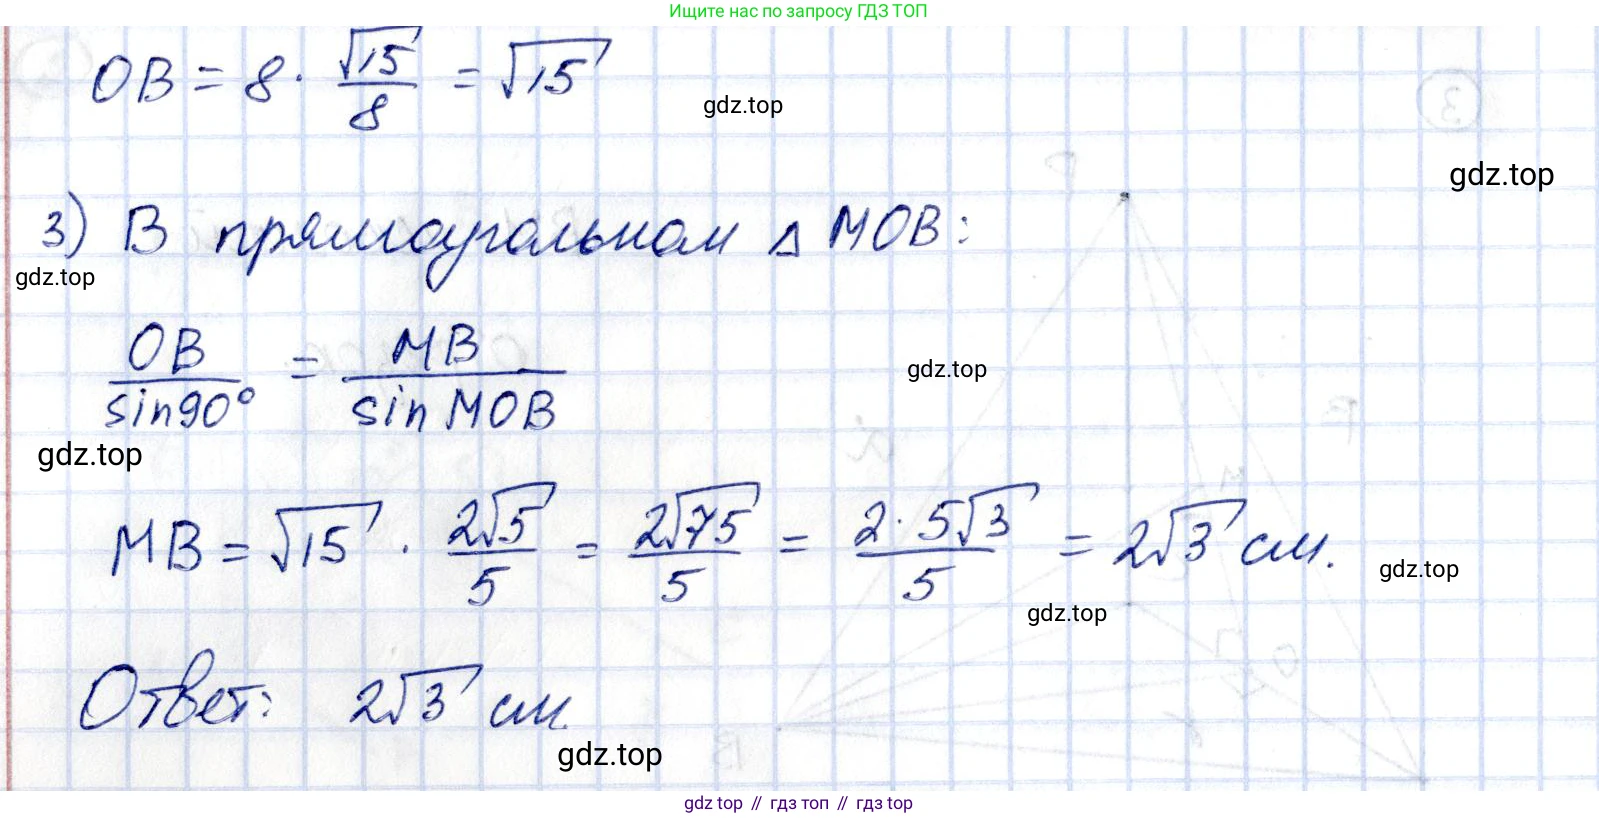 Ищите нас по запросу ГДЗ ТОП
OB = 8 · √15/8 = √15
gdz.top
gdz.top
3) В прямоугольном △ MOB:
gdz.top
OB/sin90° = MB/sin MOB
gdz.top
gdz.top
MB = √15 · 2√5/5 = 2√75/5 = 2·5√3/5 = 2√3 см.
gdz.top
gdz.top
Ответ: 2√3 см.
gdz.top
gdz top // гдз топ // гдз top